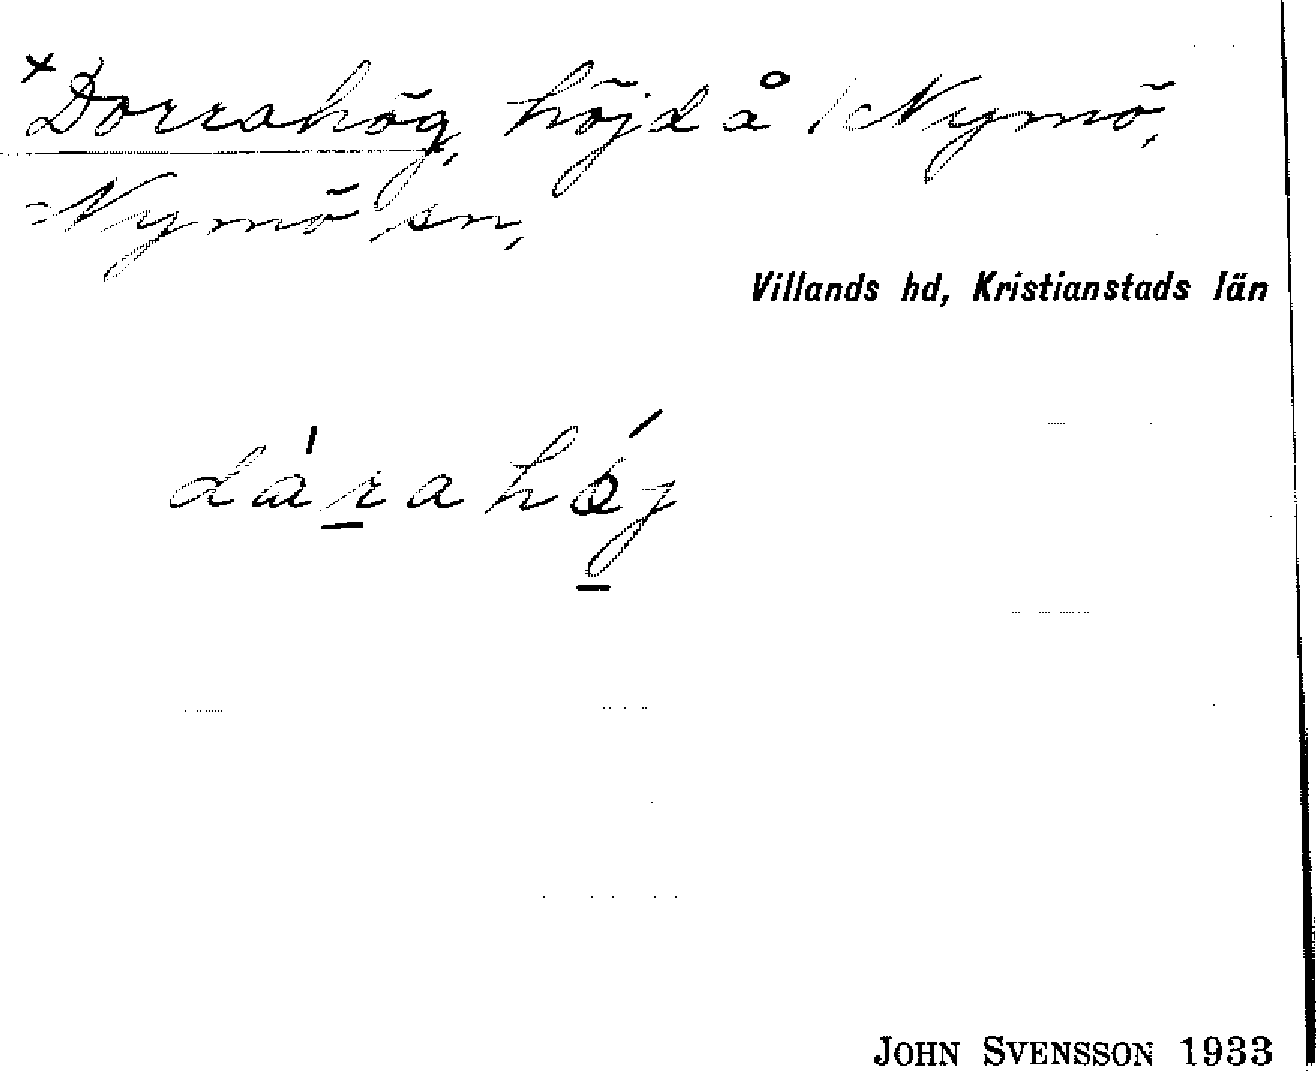 ×Dorrahög, höjd å /Nymö,
Nymö sn,
Villands hd, Kristianstads län
dàrahǿj
JOHN SVENSSON 1933